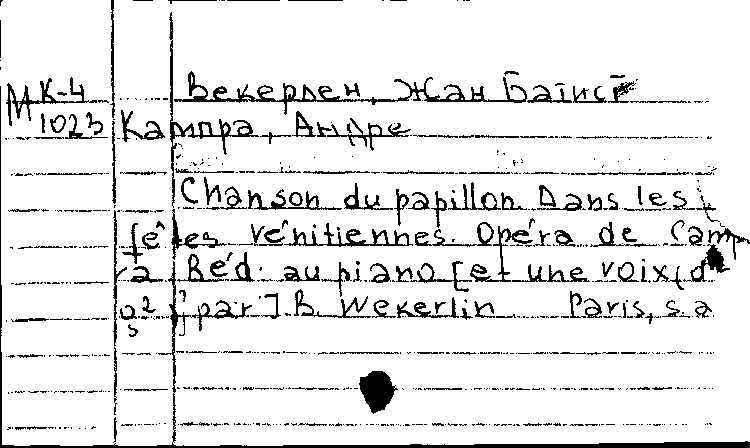 Векерлен, Жан Батист
М К-4
1023
Кампра, Андре
Chanson du papillon. Dans les
fêtes vénitiennes. Opéra de Camp
ra Réd. au piano [et une voix (d
par] B. Wekerlin Paris, s.a